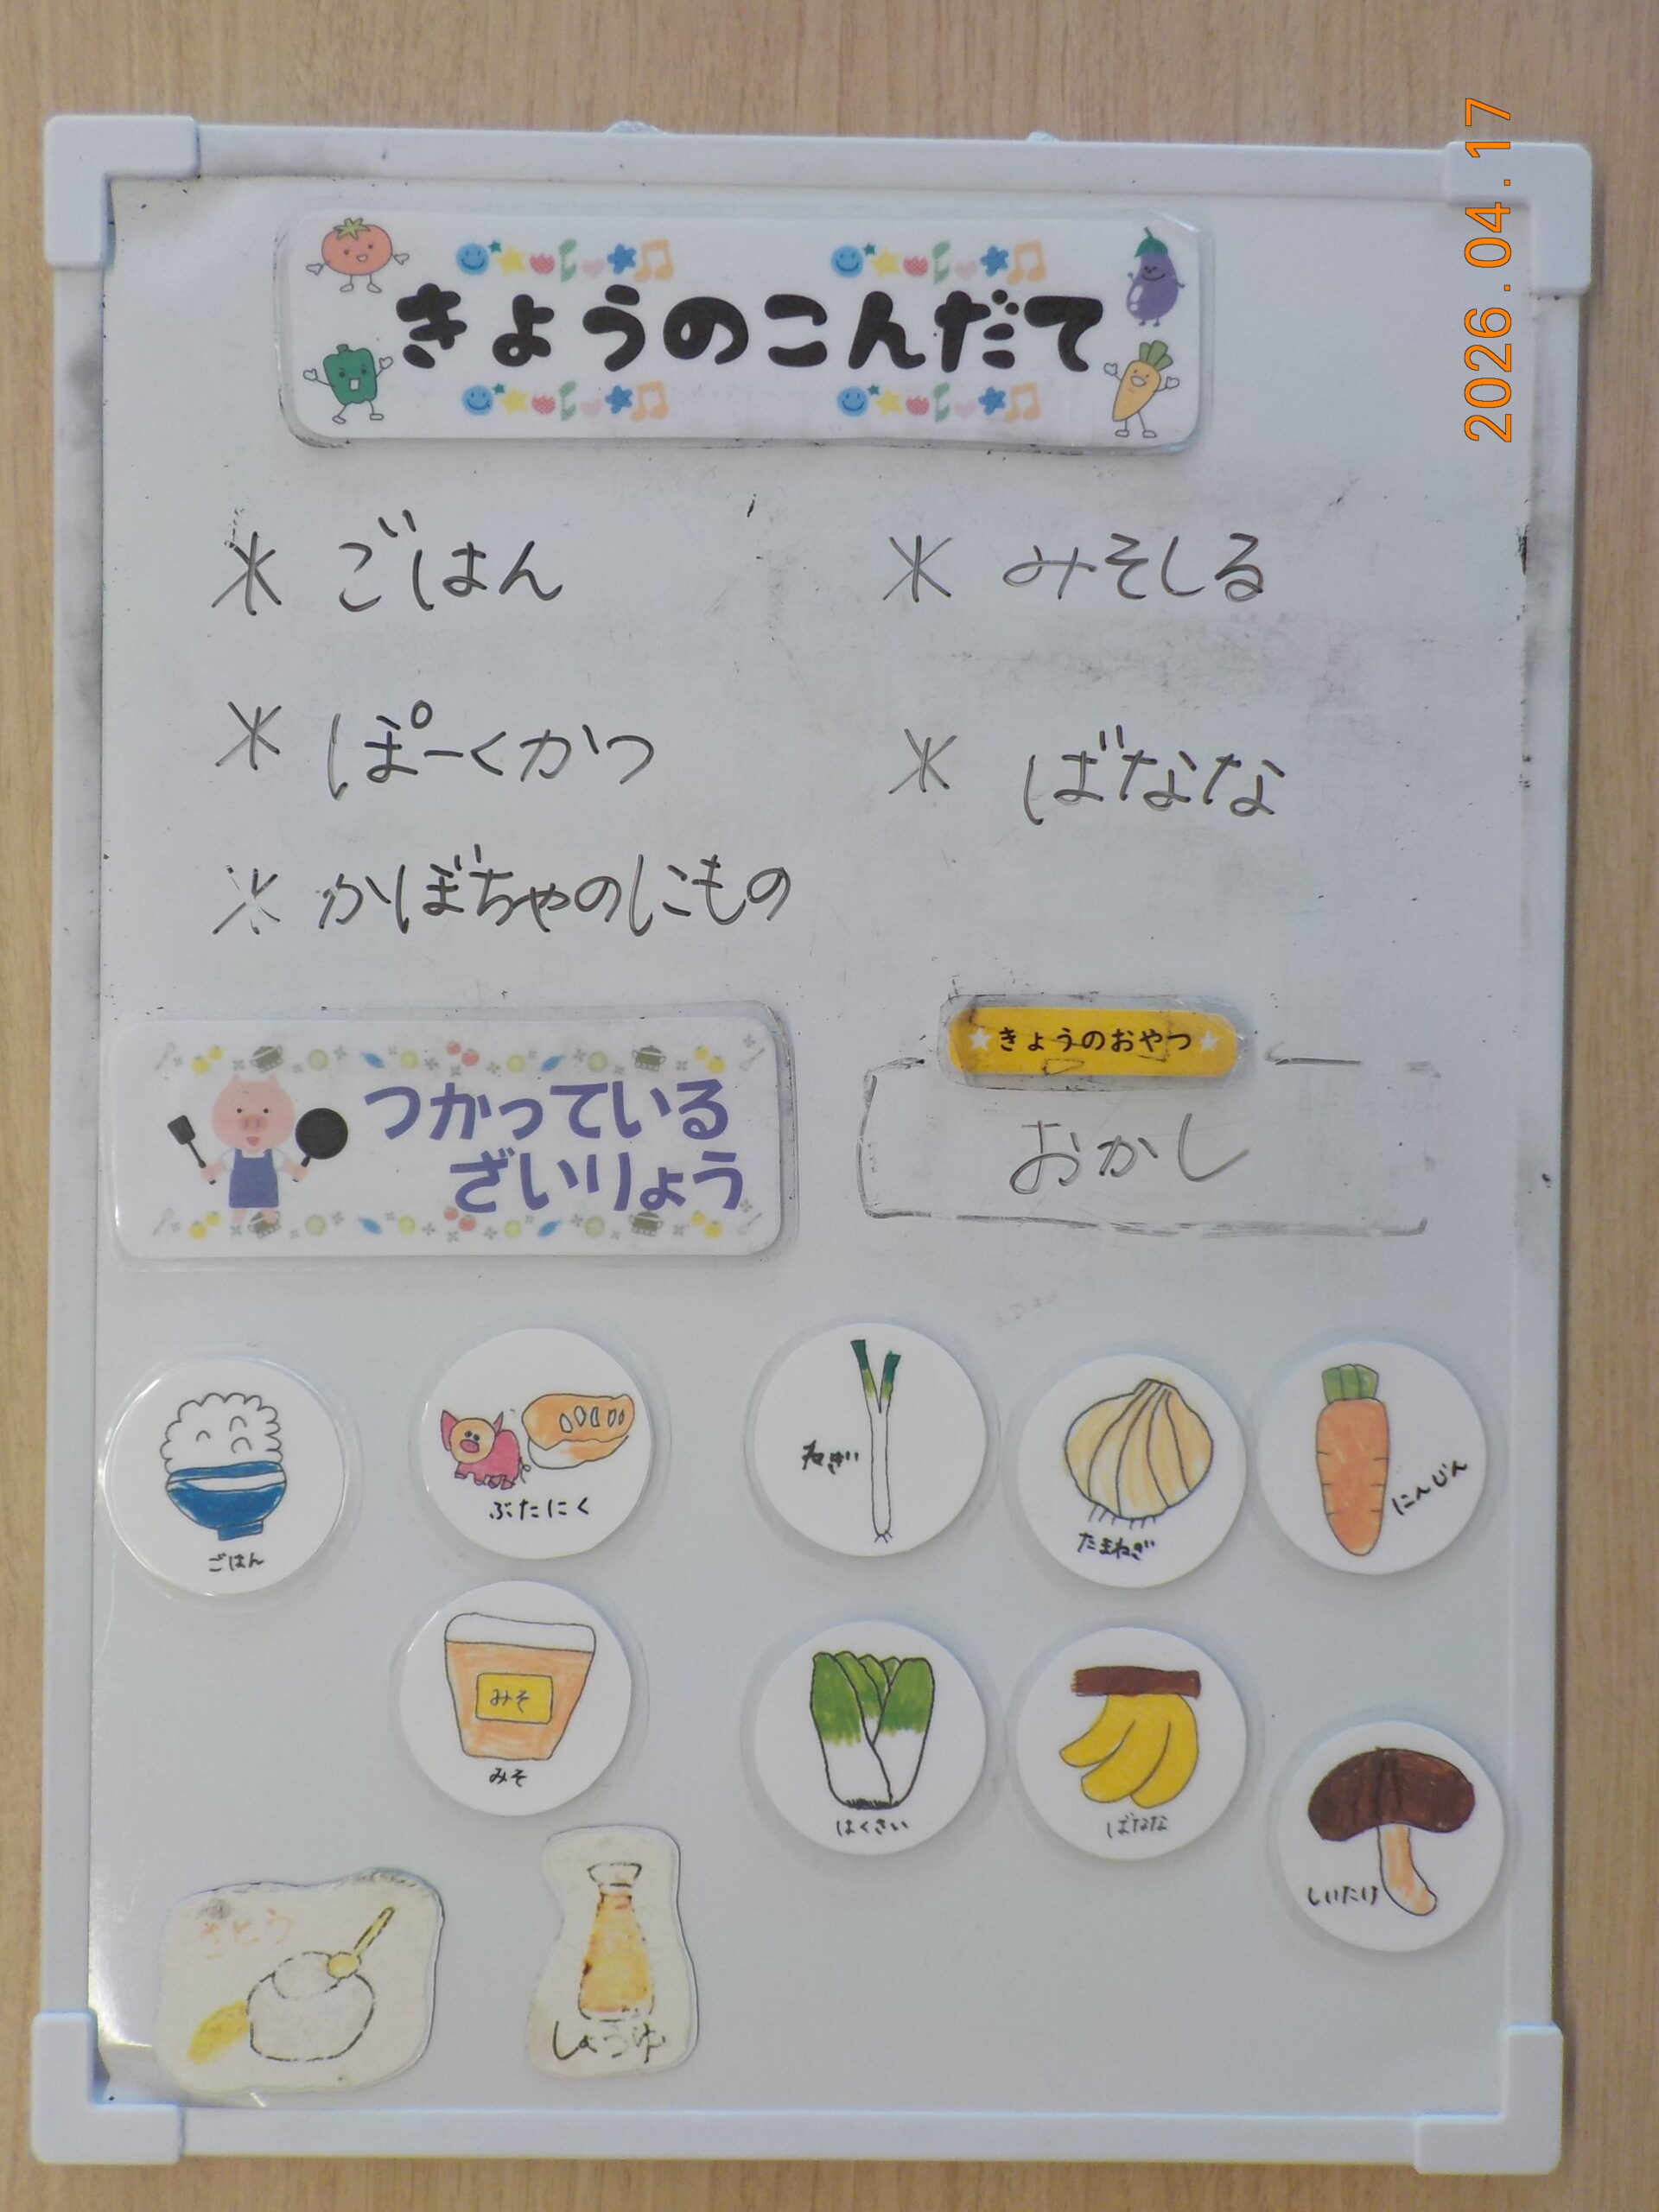 2026.04.17
きょうのこんだて
* ごはん
* みそしる
* ぽーくかつ
* ばなな
* かぼちゃのにもの
きょうのおやつ
おかし
つかっている
ざいりょう
ごはん
ぶたにく
ねぎ
たまねぎ
にんじん
みそ
みそ
はくさい
ばなな
しいたけ
さとう
しょうゆ